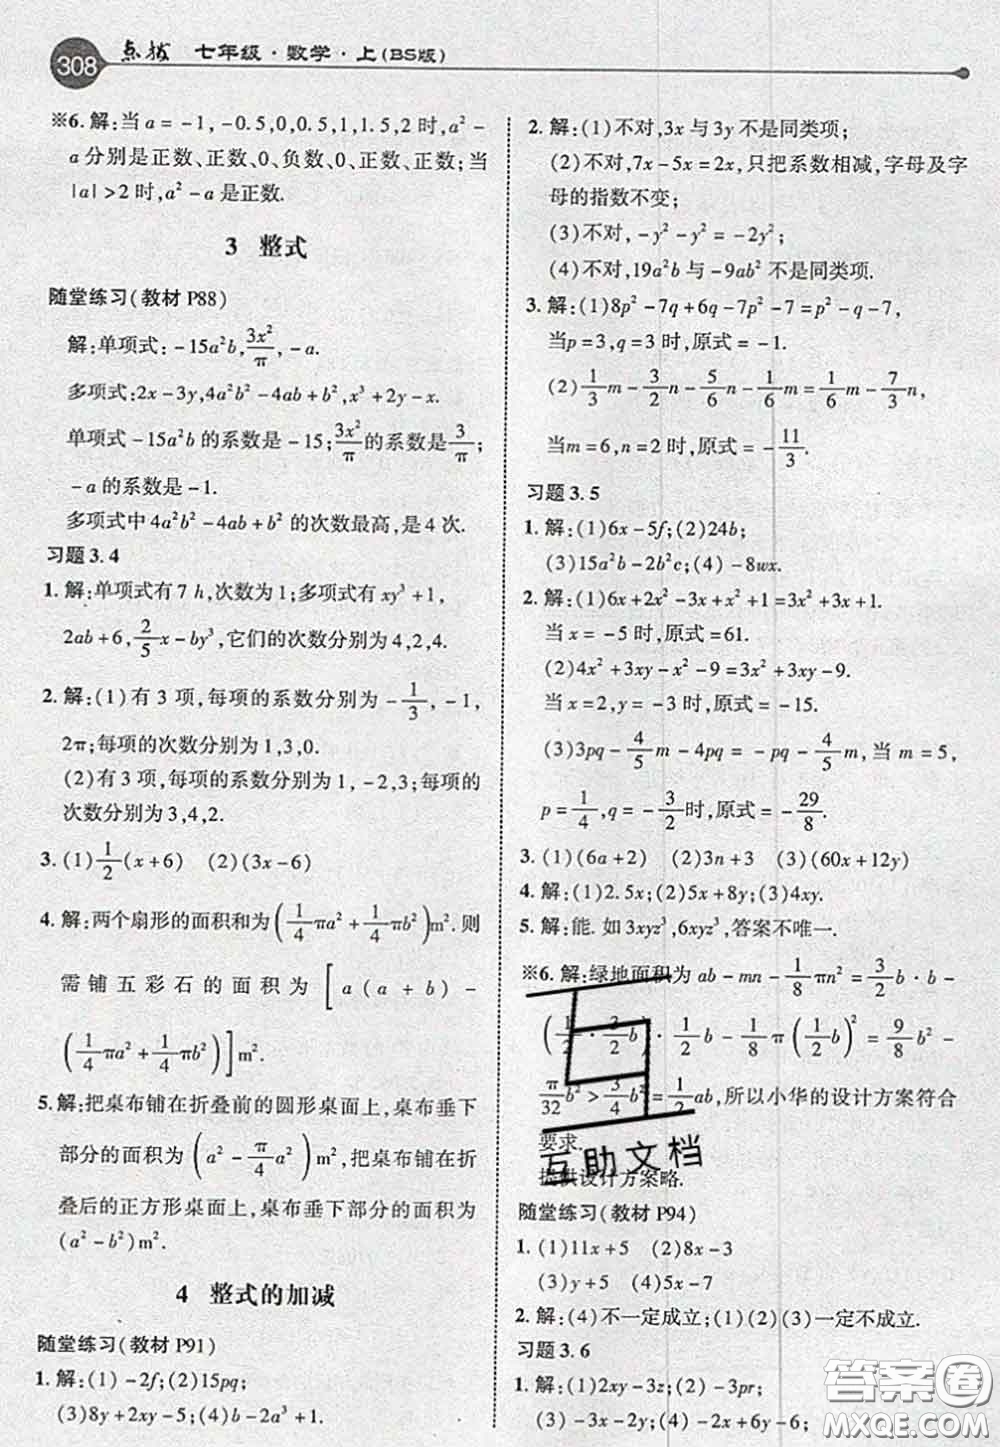 308 点拨 七年级·数学·上(BS版)
※6.解:当a=-1,-0.5,0,0.5,1,1.5,2时,a²-
a分别是正数、正数、0、负数、0、正数、正数;当
|a|>2时,a²-a是正数.
3 整式
随堂练习(教材P88)
解:单项式:-15a²b,3x²/π,-a.
多项式:2x-3y,4a²b²-4ab+b²,x³+2y-x.
单项式-15a²b的系数是-15;3x²/π的系数是3/π;
-a的系数是-1.
多项式中4a²b²-4ab+b²的次数最高,是4次.
习题3.4
1.解:单项式有7h,次数为1;多项式有xy³+1,
2ab+6,2/5x-by³,它们的次数分别为4,2,4.
2.解:(1)有3项,每项的系数分别为-1/3,-1,
2π;每项的次数分别为1,3,0.
(2)有3项,每项的系数分别为1,-2,3;每项的
次数分别为3,4,2.
3.(1)1/2(x+6) (2)(3x-6)
4.解:两个扇形的面积和为(1/4πa²+1/4πb²)m².则
需铺五彩石的面积为[a(a+b)-
(1/4πa²+1/4πb²)]m².
5.解:把桌布铺在折叠前的圆形桌面上,桌布垂下
部分的面积为(a²-π/4a²)m²;把桌布铺在折
叠后的正方形桌面上,桌布垂下部分的面积为
(a²-b²)m².
4 整式的加减
随堂练习(教材P91)
1.解:(1)-2f;(2)15pq;
(3)8y+2xy-5;(4)b-2a³+1.
2.解:(1)不对,3x与3y不是同类项;
(2)不对,7x-5x=2x,只把系数相减,字母及字
母的指数不变;
(3)不对,-y²-y²=-2y²;
(4)不对,19a²b与-9ab²不是同类项.
3.解:(1)8p²-7q+6q-7p²-7=p²-q-7,
当p=3,q=3时,原式=-1.
(2)1/3m-3/2n-5/6n-1/6m=1/6m-7/3n,
当m=6,n=2时,原式=-11/3.
习题3.5
1.解:(1)6x-5f;(2)24b;
(3)15a²b-20b²c;(4)-8wx.
2.解:(1)6x+2x²-3x+x²+1=3x²+3x+1.
当x=-5时,原式=61.
(2)4x²+3xy-x²-9=3x²+3xy-9.
当x=2,y=-3时,原式=-15.
(3)3pq-4/5m-4pq=-pq-4/5m,当m=5,
p=1/4,q=-3/2时,原式=-29/8.
3.(1)(6a+2) (2)3n+3 (3)(60x+12y)
4.解:(1)2.5x;(2)5x+8y;(3)4xy.
5.解:能.如3xyz³,6xyz³,答案不唯一.
※6.解:绿地面积为ab-mn-1/8πn²=3/2b·b-
(1/2·3/2b)·1/2b-1/8π(1/2b)²=9/8b²-
π/32b²>3/4b²=1/2ab,所以小华的设计方案符合
要求.
互助文档
提供设计方案略.
随堂练习(教材P94)
1.(1)11x+5 (2)8x-3
(3)y+5 (4)5x-7
2.解:(4)不一定成立;(1)(2)(3)一定不成立.
习题3.6
1.解:(1)2xy-3z;(2)-3pr;
(3)-2xy-6x;(4)-4y+6;
答案圈
MXQE.COM